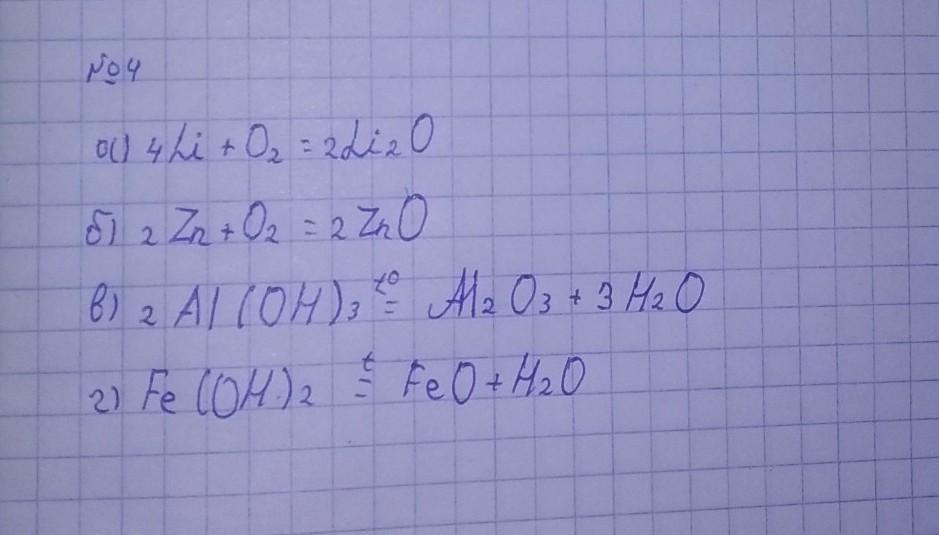 №4
а) 4Li + O₂ = 2Li₂O
б) 2 Zn + O₂ = 2 ZnO
в) 2 Al(OH)₃ t°= Al₂O₃ + 3 H₂O
г) Fe(OH)₂ t= FeO + H₂O